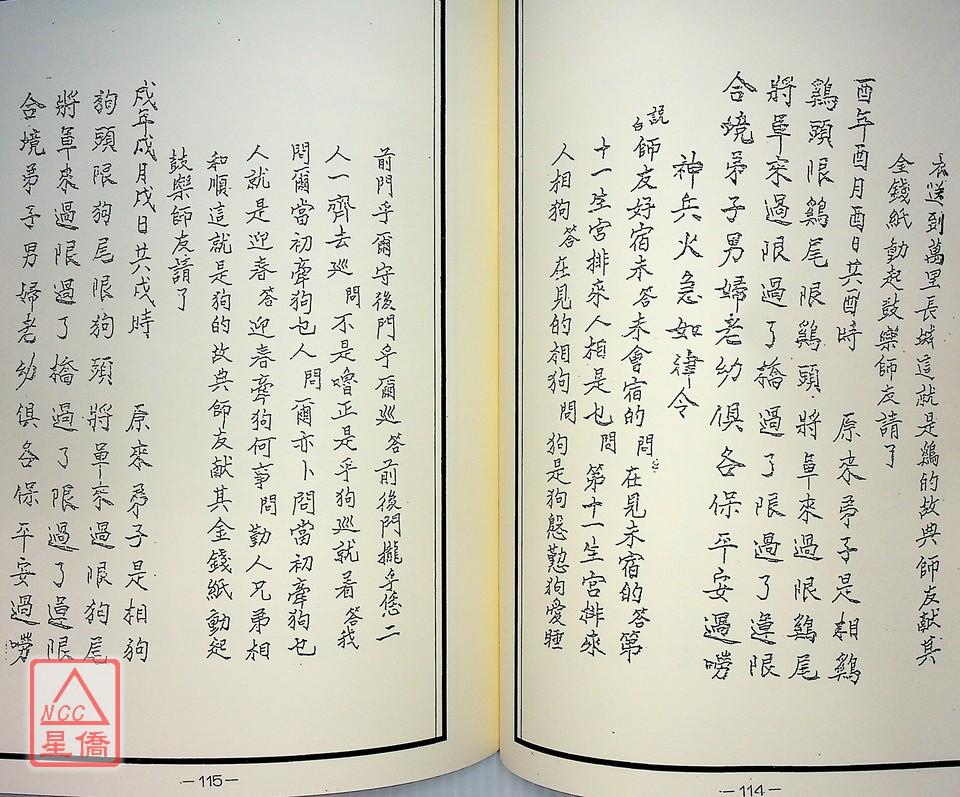 衣送到萬里長城這就是鷄的故典師友献其
金錢紙動起鼓樂師友請了
酉年酉月酉日共酉時 原來弟子是相鷄
鷄頭限鷄尾限鷄頭將軍來過限鷄尾
將軍來過限過了橋過了限過了連限
合境弟子男婦老幼俱各保平安過嘮
神兵火急如律令
説白師友好宿未答未會宿的問在見未宿的答第
十一生宮排來人相是乜問第十一生宮排來
人相狗答在見的相狗問狗是狗慇懃狗愛睡
—114—
前門乎爾守後門乎爾巡答前後門攏乎您二
人一齊去巡問不是嚕正是乎狗巡就着答我
問爾當初牽狗乜人問爾亦卜問當初牽狗乜
人就是迎春答迎春牽狗何事問勤人兄弟相
和順這就是狗的故典師友献其金錢紙動起
鼓樂師友請了
戍年戍月戍日共戍時 原來弟子是相狗
狗頭限狗尾限狗頭將軍來過限狗尾
將軍來過限過了橋過了限過了連限
合境弟子男婦老幼俱各保平安過嘮
—115—
NCC
星僑